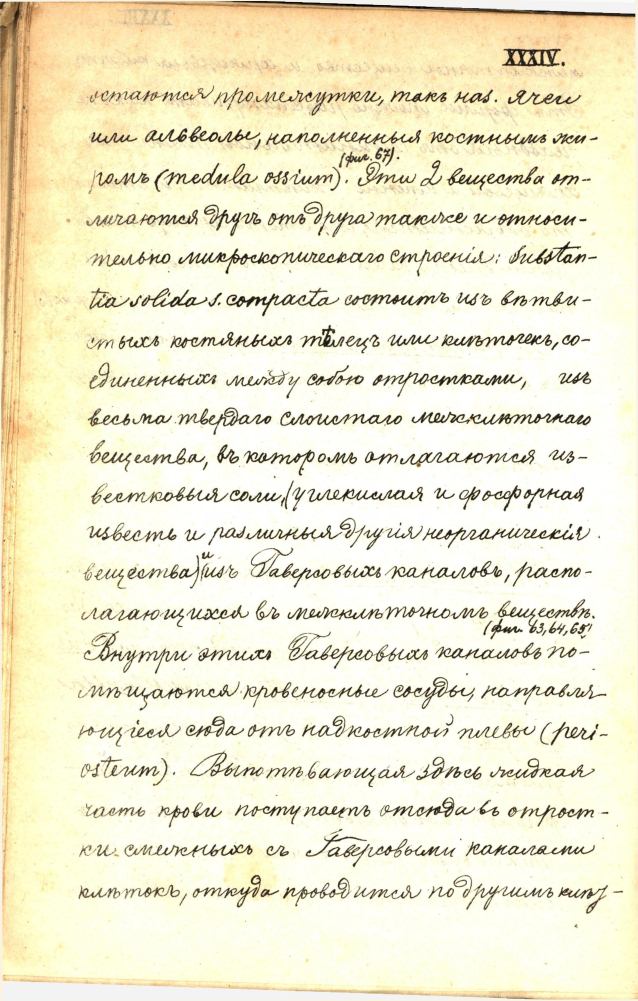 XXXIV.
остаются промежутки, такъ наз. ячеи
или альвеолы, наполненныя костнымъ жи-
(фиг. 67).
ромъ (medula ossium). Эти 2 вещества от-
личаются другъ отъ друга также и относи-
тельно микроскопическаго строенія: Substan-
tia solida s. compacta состоитъ изъ вѣтви-
стыхъ костяныхъ тѣлецъ или клѣточекъ, со-
единенныхъ между собою отростками, изъ
весьма твердаго слоистаго межклѣточнаго
вещества, въ которомъ отлагаются из-
вестковыя соли, (углекислая и фосфорная
известь и различныя другія неорганическія
вещества) и изъ Гаверсовыхъ каналовъ, распо-
лагающихся въ межклѣточномъ веществѣ.
(фиг. 63,64,65)
Внутри этихъ Гаверсовыхъ каналовъ по-
мѣщаются кровеносные сосуды, направля-
ющіеся сюда отъ надкостной плевы (peri-
osteum). Выпотѣвающая здѣсь жидкая
часть крови поступаетъ отсюда въ отрост-
ки смежныхъ съ Гаверсовыми каналами
клѣтокъ, откуда проводится по другимъ